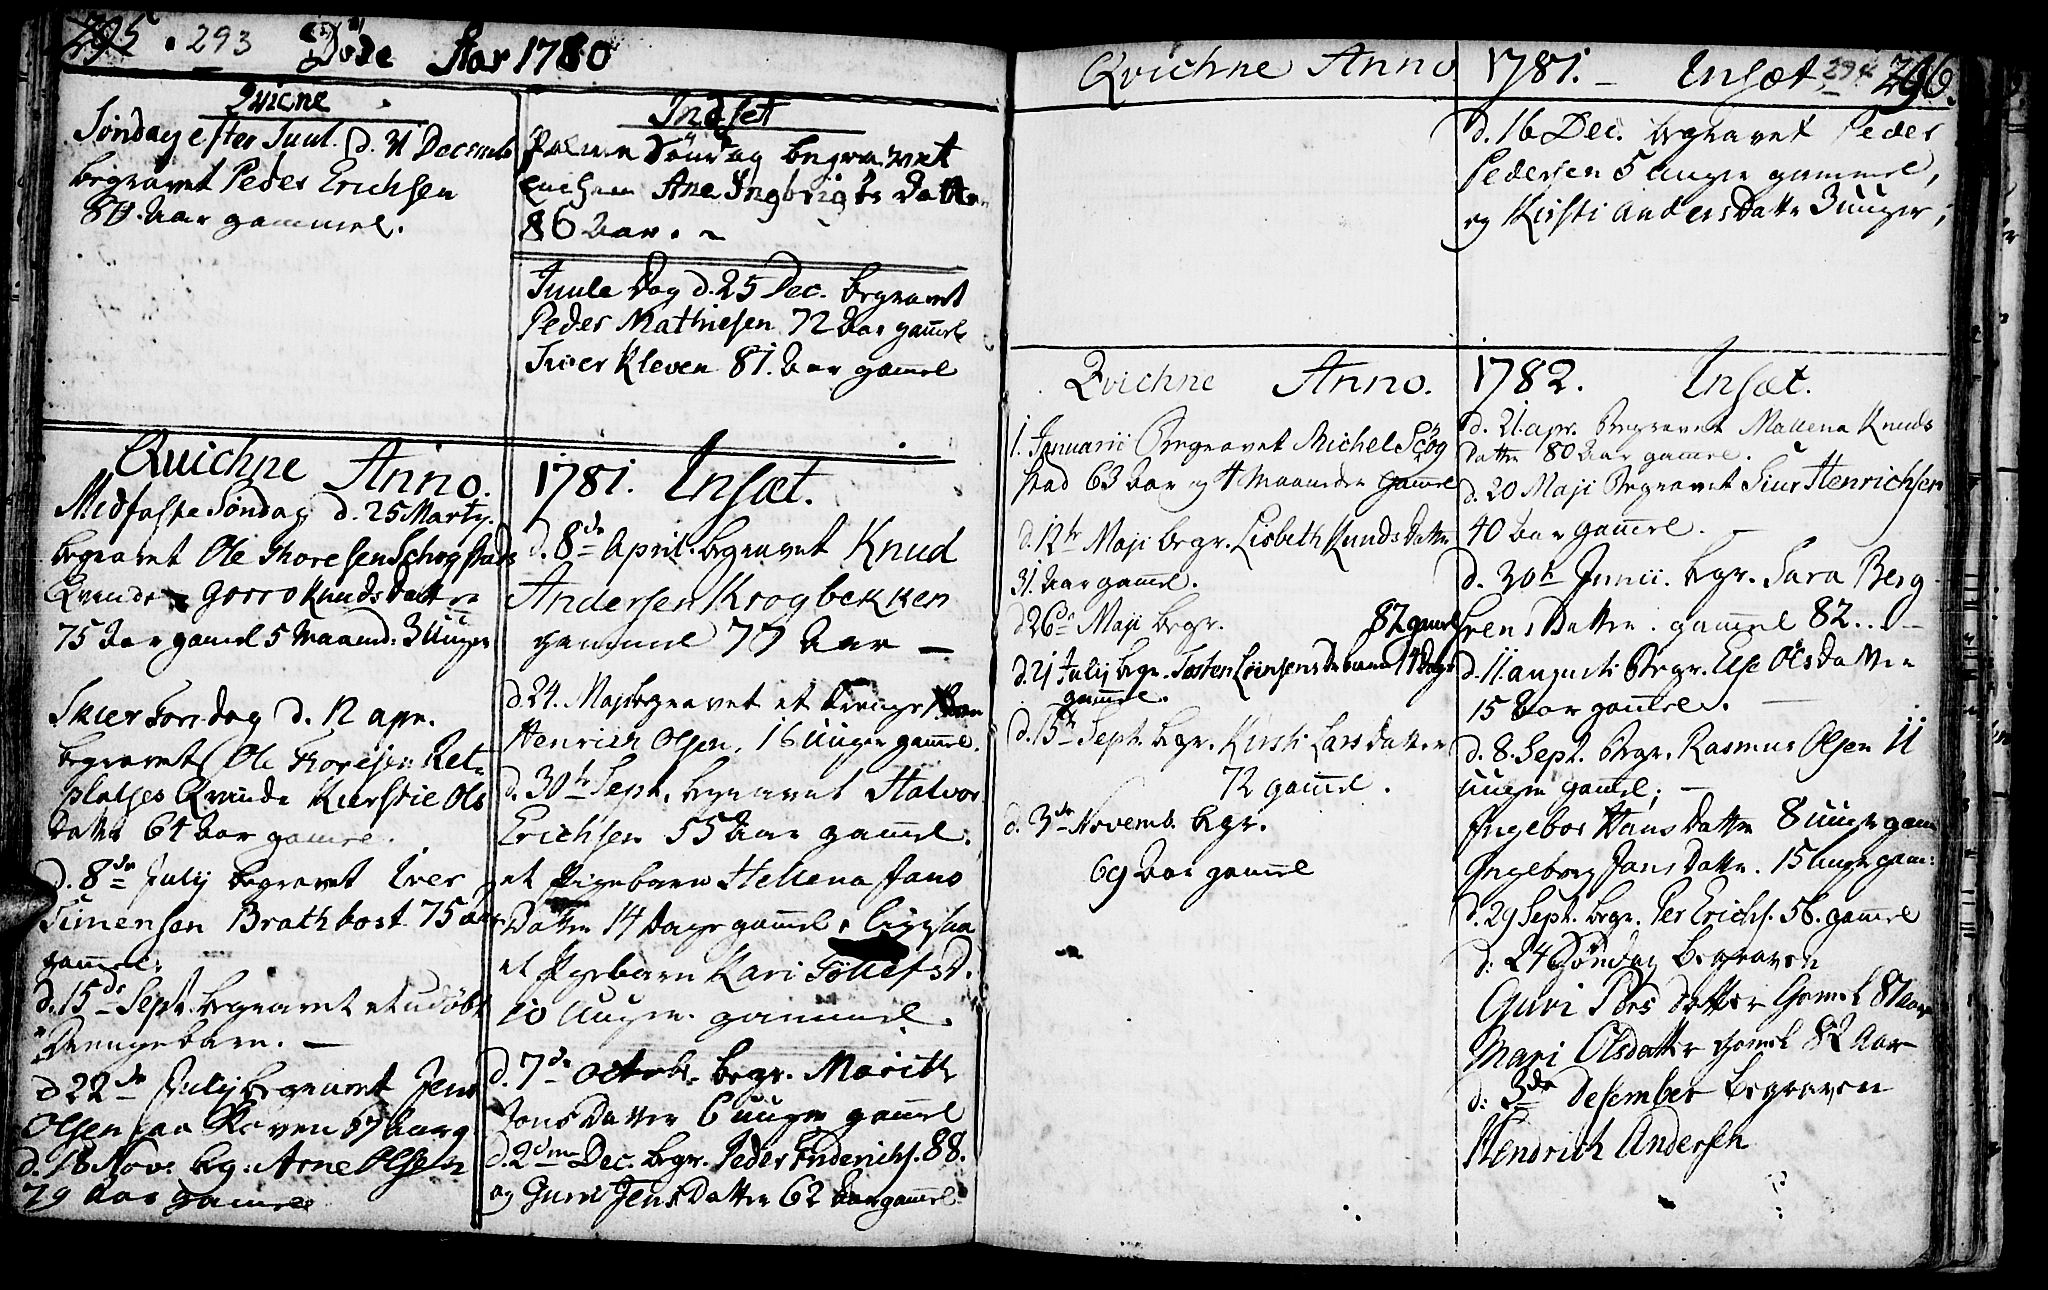 295 . 293 Døde Aar 1780
Qvicne
Søndag efter Juul. d. 31 Decemb
begravet Peder Erichsen
80 Aar gammel.
Indset
Palme Søndag begravet
Ane Ingbrigts Datter
86 Aar.
Juule Dag d. 25 Dec. begravet
Peder Mathiesen 72 Aar gamel
Iver Kleven 81. Aar gamel
Qvichne Anno.
Midfaste Søndag d. 25 Marty.
begravet Ole Thoresen Schogstads
Qvinde Gorro Knuds Datter
75 Aar gamel 5 Maand: 3 Uuger
Skier Torsdag d. 12 apr.
begravet Ole Thoresen Ret-
platses Qvinde Kierstie Ols
Datter 64 Aar gamel.
d. 8de July begravet Iver
Simensen Brathbost 75 aar
gammel.
d. 15de Sept. begravet et udøbt
Drengebarn.
d 22de July begravet Jens
Olsen paa Roven 57 Aar g
d. 18 Nov. beg: Arne Olsen
79 Aar gamel
1781. Insæt.
d. 8de April. begravet Knud
Andersen Krogbekken
gammel 77 Aar
d. 24. Maji begravet et Drenge Barn
Henrich Olsen. 16 Uuger gamel.
d. 30te Sept. begravet Halvor
Erichsen 55 Aar gamel.
et Pigebarn Hellena Jans
Datter 14 Dage gamel, ligesaa
et Pigebarn Kari Tøllefs D.
10 Uuger gammel.
d. 7de Octobr. begr. Marith
Jons Datter 6 uuger gamel
d. 2den Dec. begr. Peder Friderichs. 88.
og Guru Jens Datter 62 Aar gamel.
Qvichne Anno 1781. Insæt. 294 296.
d. 16 Dec. begravet Peder
Pedersen 5 Uuger gammel,
og Kirsti Anders Datter 3 uuger,
Qvichne Anno.
1. Januarii Begravet Michel Scög
stad 63 Aar og 4 Maaneder Gamel
d. 12te Maji begr. Lisbeth Knuds Datter
31. Aar gamel.
d 26de Maji begr. 82 gamel
d. 21 Julij begr. Tosten barn 14 Dage
gamel.
d. 15de Sept. begr. Kirsti Lars datter
72 gamel.
d. 3de Novemb. begr.
69 Aar gamel
1782. Insæt.
d. 21. apr. Begravet Mallena Knuds
Datter 80 Aar gamel.
d. 20 Maji Begravet Siur Henrichsen
40 Aar gamel.
d. 30te Junii. begr. Sara Berg-
svens Datter. gamel 82.
d. 11 augusti Begr. Else Ols Datter
15 Aar gamel.
d. 8. Sept. Begr. Rasmus Olsen 11
uuger gamel;
Ingebor Hans Datter 8 uuger gam
Ingeborg Jans Datter. 15 Uuger gam:
d. 29 Sept. begr. Per Erichs. 56. gamel
d: 24 Søndag begraven
Guri Pers datter Gamel 87 aar
Mari Olsdatter gamel 82 Aar
d: 3de desember begraven
Hendrich Andersen